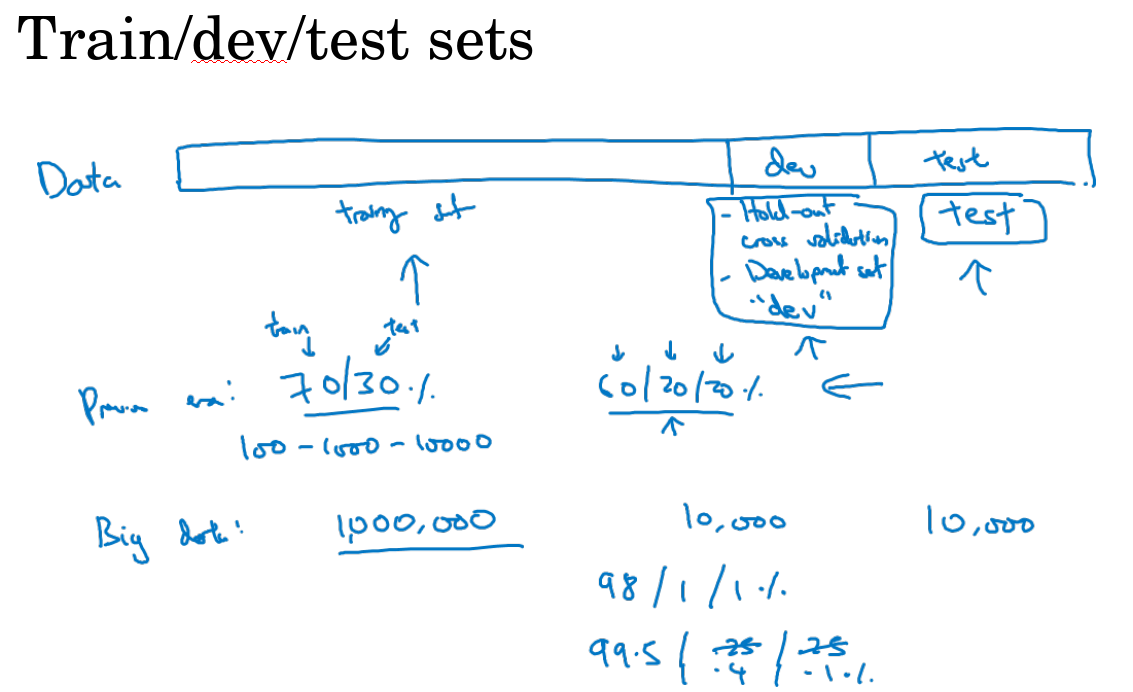 Train/dev/test sets
Data
dev
test
training set
- Hold-out
cross validation
- Development set
"dev"
test
train
test
Previous era:
70/30%
60/20/20%
100 - 1000 - 10000
Big data:
1,000,000
10,000
10,000
98/1/1%
99.5 / .25 / .25
.4 .1%